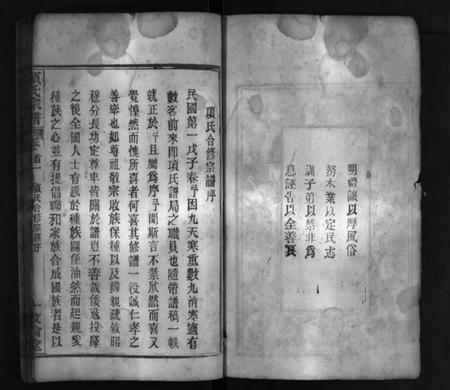 明禮讓以厚風俗
務本業以定民志
訓子弟以禁非為
息誣告以全善良
項氏合修宗譜序
民國第一戊子春予因九天寒重數九消寒適有
數客前來即項氏譜局之職員也隨帶譜稿一帙
就正於予且屬為序予聞斯言不禁欣然而喜又
覺惶然而愧所喜者何喜其修譜一役誠仁孝之
善舉也如尊祖敬宗收族保種以及辨親疏敘昭
穆分長幼定尊卑皆關於譜豈不善哉倭寇投降
之後全國人士有鑒於種族關係油然而起親愛
種族之心並有提倡聯和家族合成國族者是以
項氏宗譜 卷首一 項氏合修宗譜序 一 敦倫堂